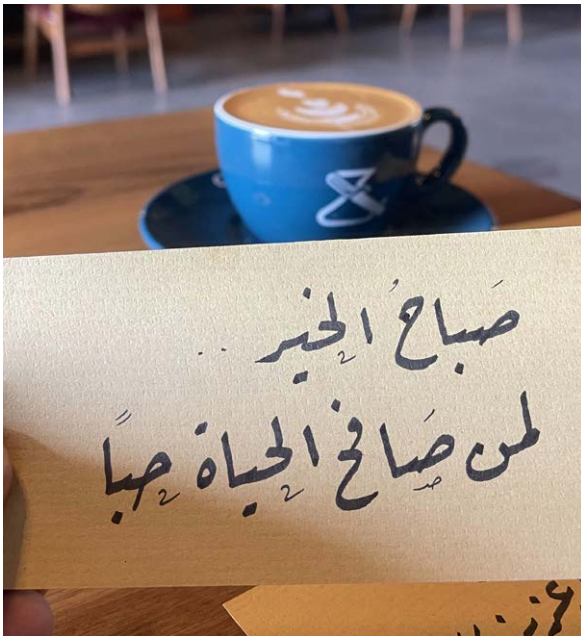 صَباحُ الخير ..
لمن صَافح الحياة حباً